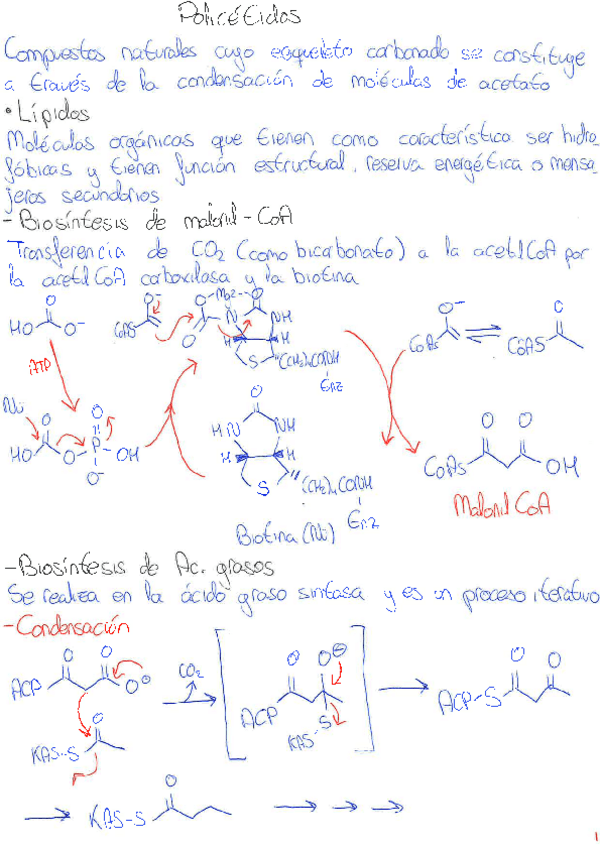 Policétidos
Compuestos naturales cuyo esqueleto carbonado se constituye
a través de la condensación de moléculas de acetato
• Lípidos
Moléculas orgánicas que tienen como característica ser hidro
fóbicas y tienen función estructural, reserva energética o mensa
jeros secundarios
- Biosíntesis de malonil-CoA
Transferencia de CO2 (como bicarbonato) a la acetil CoA por
la acetil CoA carboxilasa y la biotina
O O⁻ O Mg2 O
HO O⁻ CoAS O N NH
H H
S (CH2)4CONH
Enz
O⁻ O
CoAs CoAS
ATP
Nu O O
HO O P OH
O⁻
O
HN NH
H H
S (CH2)4CONH
Enz
Biotina (Nu)
O O
CoAs OH
Malonil CoA
- Biosíntesis de Ac. grasos
Se realiza en la ácido graso sintasa y es un proceso iterativo
- Condensación
O O
ACP O⊖
CO2
O O⊖
ACP
KAS-S
O O
ACP-S
O
KAS-S
O
KAS-S
1